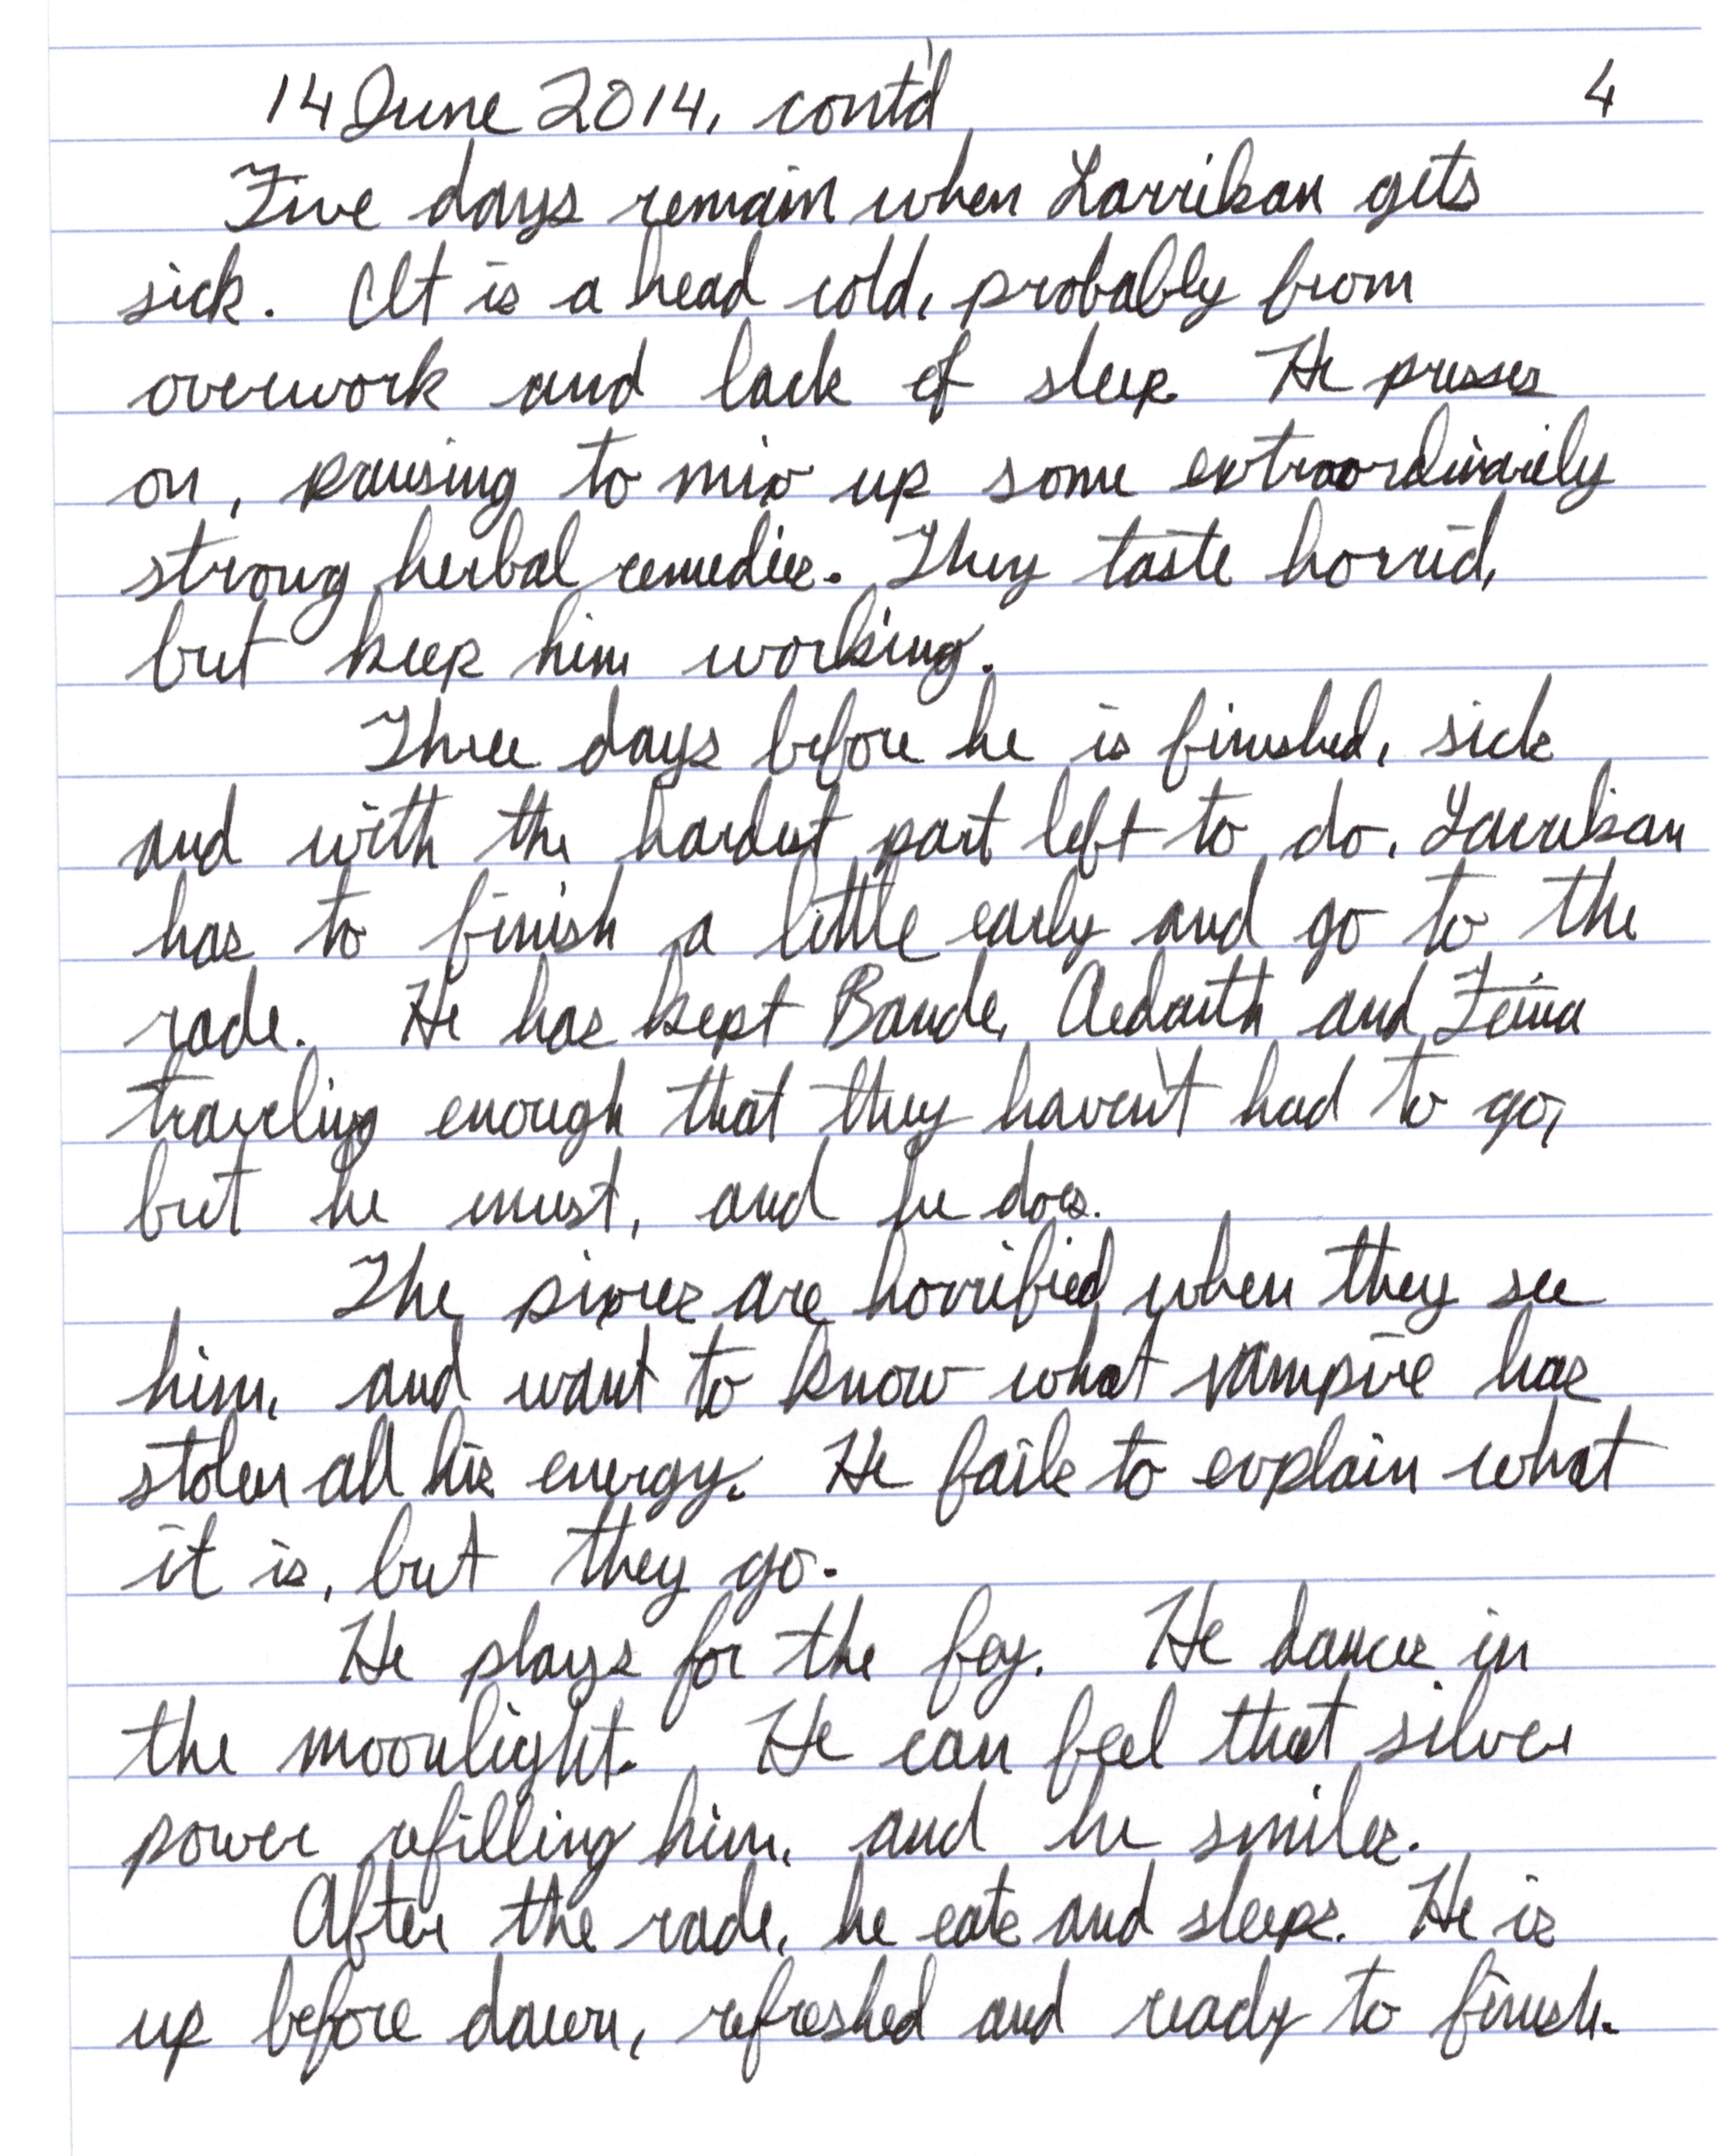 14 June 2014, cont'd 4
Five days remain when Larrikan gets
sick. It is a head cold, probably from
overwork and lack of sleep. He presses
on, pausing to mix up some extraordinarily
strong herbal remedies. They taste horrid,
but keep him working.
Three days before he is finished, sick
and with the hardest part left to do, Larrikan
has to finish a little early and go to the
rade. He has kept Baude, Aedauth and Feina
traveling enough that they haven't had to go,
but he must, and he does.
The pixies are horrified when they see
him, and want to know what vampire has
stolen all his energy. He fails to explain what
it is, but they go.
He plays for the fey. He dances in
the moonlight. He can feel that silver
power refilling him, and he smiles.
After the rade, he eats and sleeps. He is
up before dawn, refreshed and ready to finish.